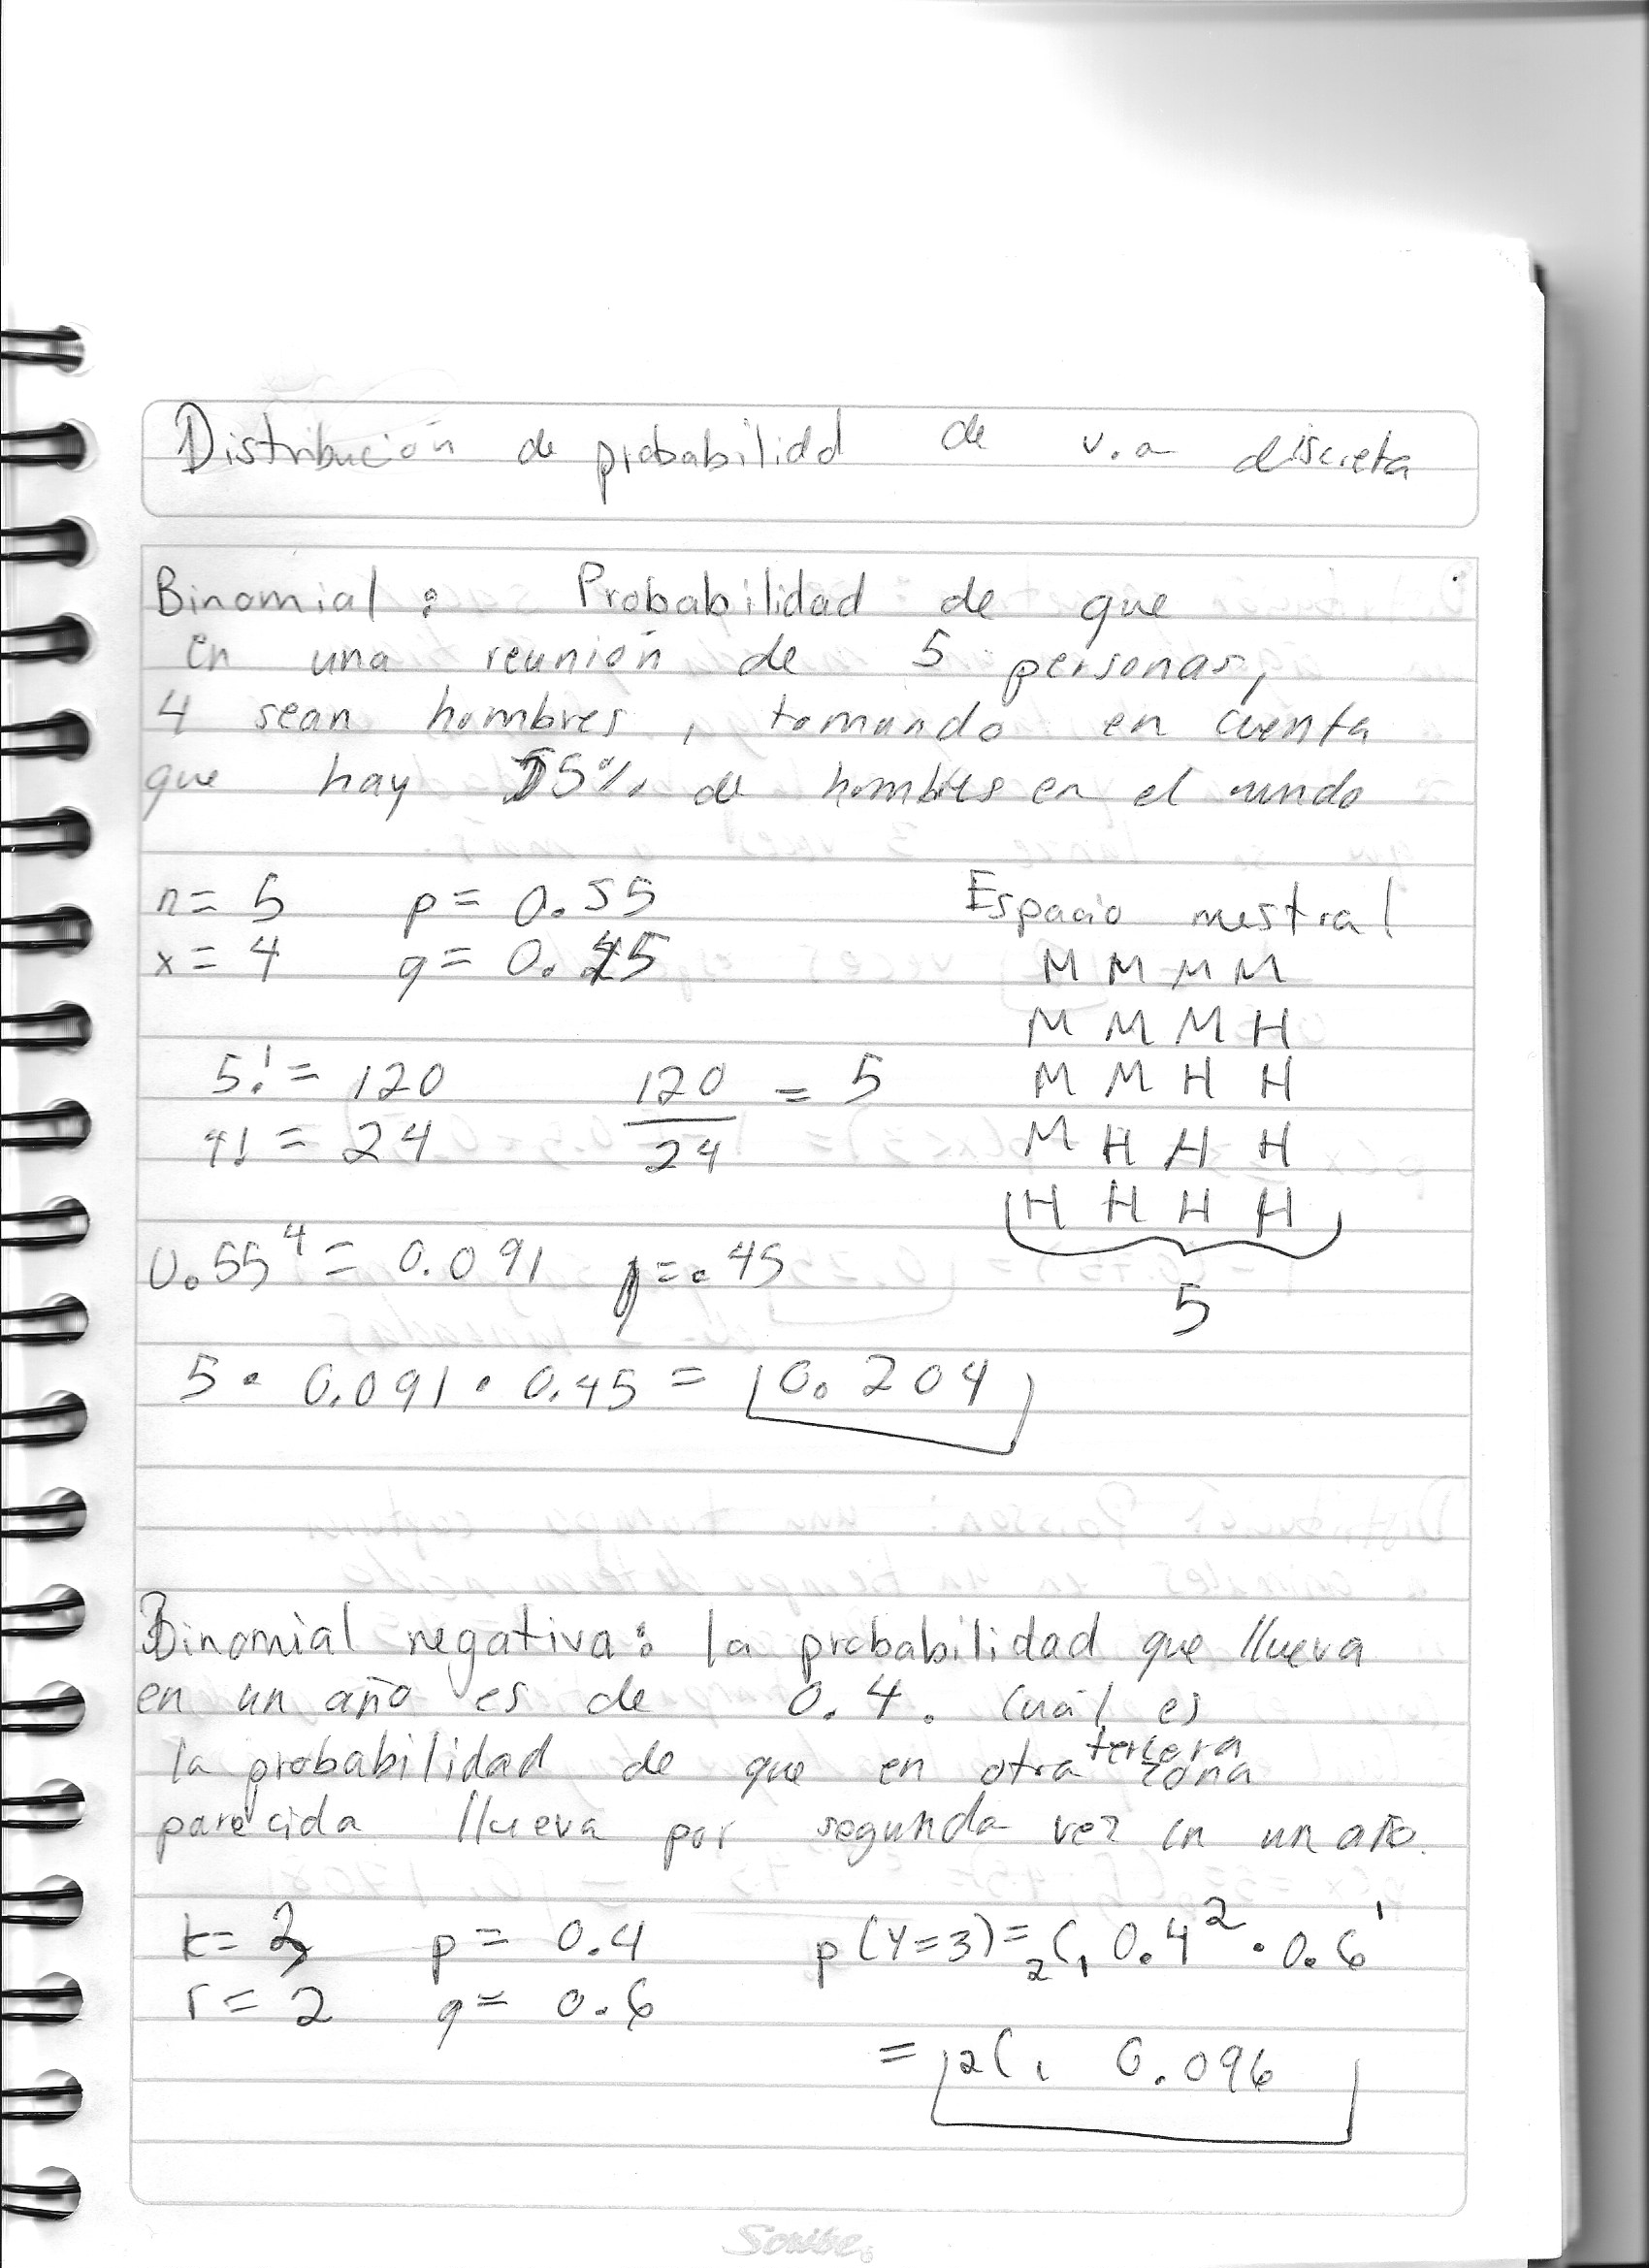 Distribución de probabilidd de v.a discreta
Binomial: Probabilidad de que
en una reunión de 5 personas,
4 sean hombres, tomando en cuenta
que hay 55% de hombres en el mundo
n= 5 p= 0.55 Espacio mestral
x= 4 q= 0.45 M M M M
M M M H
5!= 120 120/24 = 5 M M H H
4! = 24 M H H H
H H H H
0.55⁴= 0.091 p=.45
5
5 · 0.091 · 0.45 = 0.204
Binomial negativa: la probabilidad que llueva
en un año es de 0.4. Cuál es
la probabilidad de que en otra tercera zona
parecida llueva por segunda vez en un año.
k= 3 p= 0.4 p(Y=3)= ₂C₁ 0.4² · 0.6¹
r= 2 q= 0.6
= ₂C₁ 0.096
Scribe